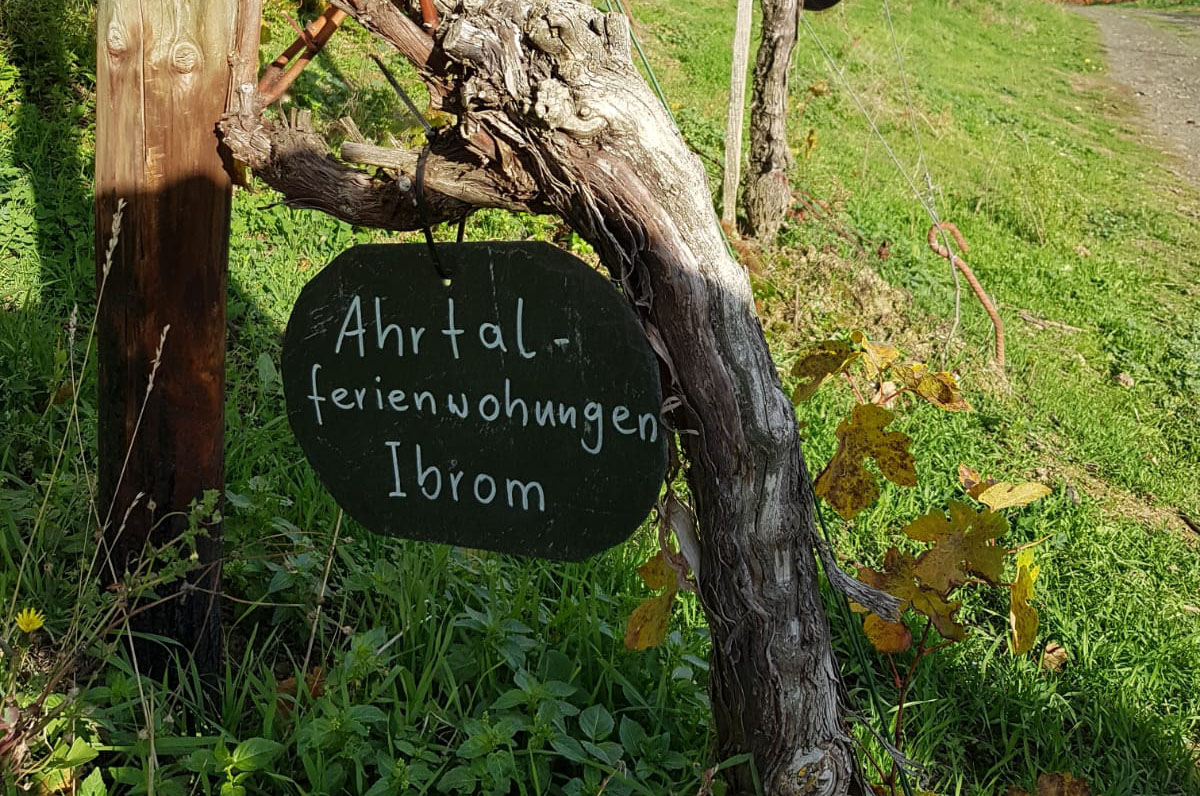 Ahrtal-
ferienwohungen
Ibrom